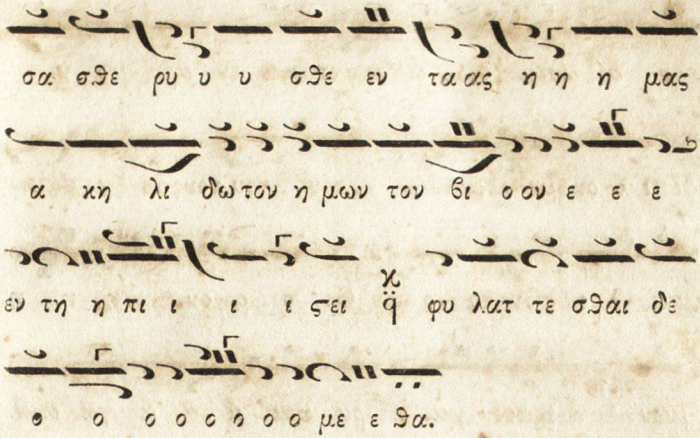 σα σθε ρυ υ υ σθε εν τα ας η η η μας
α κη λι δω τον η μων τον βι ο ον ε ε ε
έν τη η πι ι ι ι ϛει q̈ φυ λατ τε σθαι δε
ο ο ο ο ο ο ο ο με ε θα.